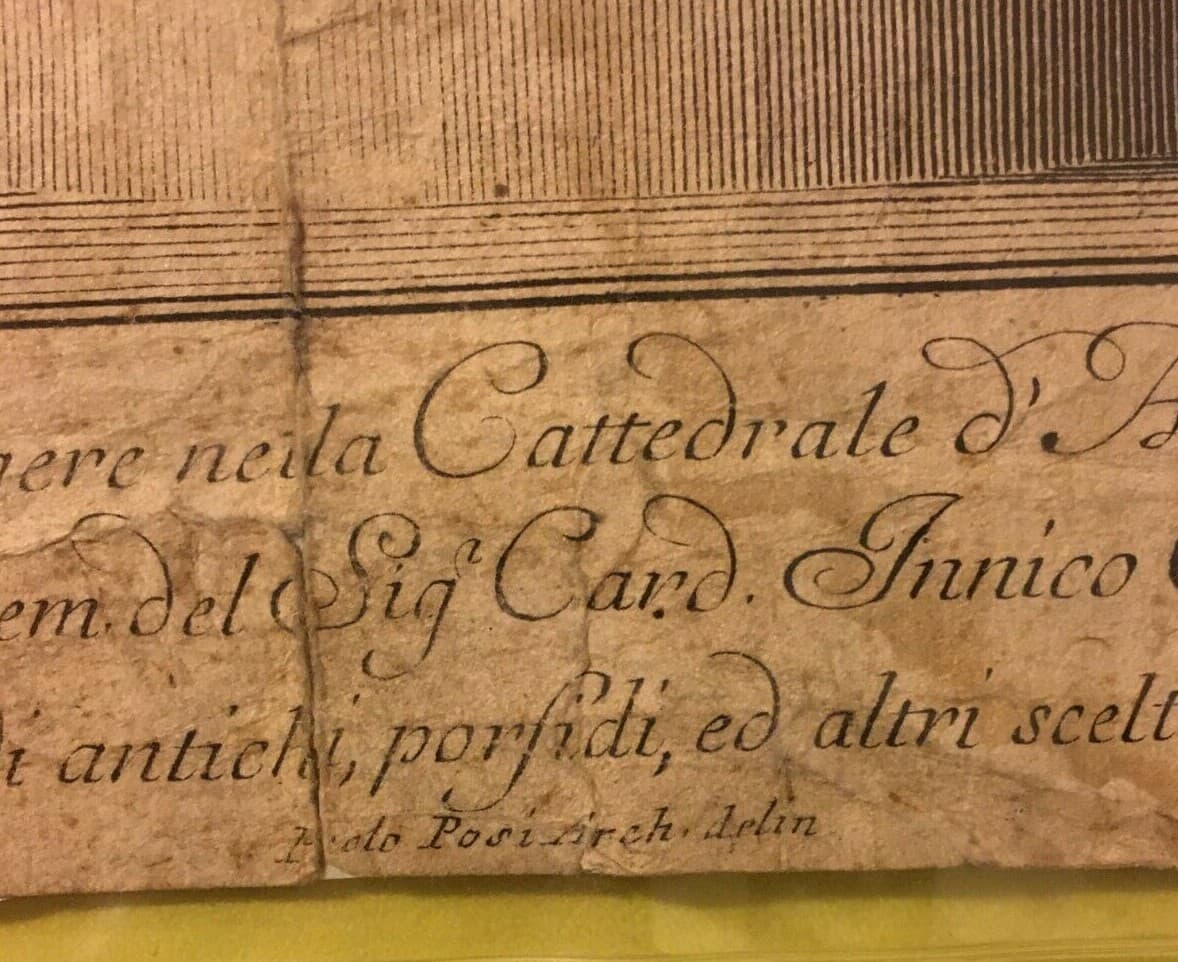 nella Cattedrale d'A
em. del Sig.r Card. Innico
di antichi, porfidi, ed altri scelt
Paolo Posi Arch. delin